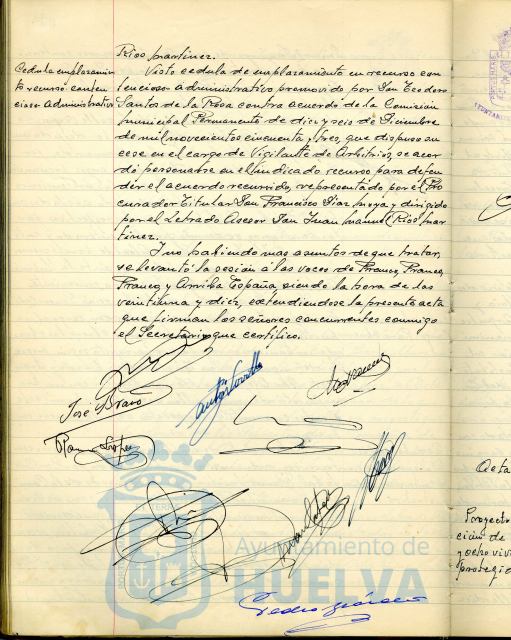 Rios martinez.
Cedula emplazamien
to recurso conten
cioso administrativo
Visto cedula de emplazamiento en recurso con
tencioso administrativo promovido por Don Teodoro
Santos de la Rosa contra acuerdo de la Comisión
municipal Permanente de diez y seis de Diciembre
de mil novecientos cincuenta y tres, que dispuso su
cese en el cargo de Vigilante de Arbitrios, se acor
dó personarse en el indicado recurso para defen
der el acuerdo recurrido, representado por el Pro
curador Titular Don Francisco Diaz moya y dirigido
por el Letrado Asesor Don Juan Manuel Rios mar
tinez.
Y no habiendo mas asuntos de que tratar,
se levantó la sesión á las voces de Franco, Franco,
Franco y Arriba España, siendo la hora de las
veintiuna y diez, extendiendose la presente acta
que firman los señores concurrentes conmigo
el Secretario que certifico.
José Bravo
Ayuntamiento de
HUELVA
Pedro
Acta
Proyecto
ción de
y ocho vivi
protegid